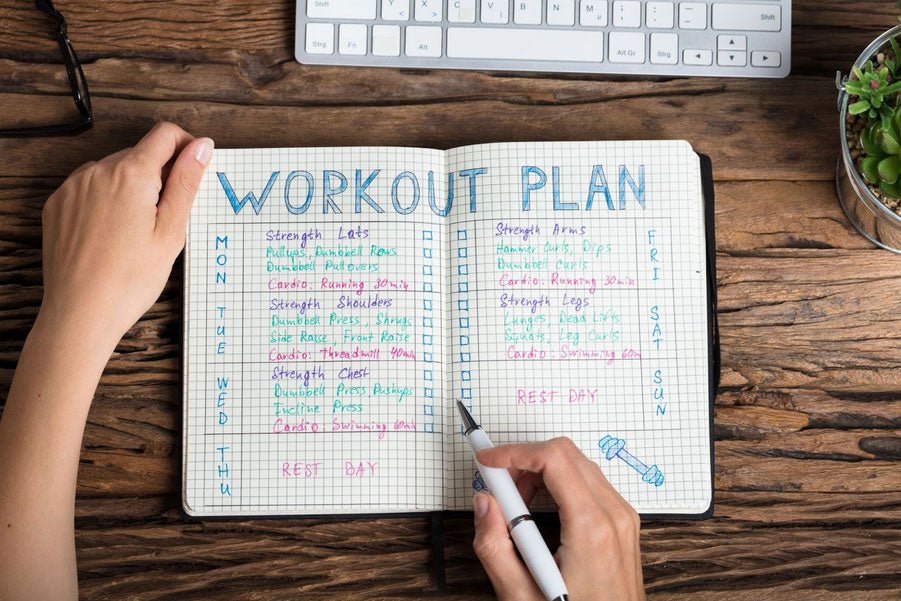 Shift Y X C V B N M Shift
Strg Fn Alt Alt Gr Strg
WORKOUT PLAN
MON
Strength Lats
Pullups, Dumbbell Rows
Dumbbell Pullovers
Cardio: Running 30min
TUE
Strength Shoulders
Dumbbell Press, Shrugs
Side Raise, Front Raise
Cardio: Threadmill 40min
WED
Strength Chest
Dumbbell Press Pushups
Incline Press
Cardio: Swimming 60min
THU
REST DAY
FRI
Strength Arms
Hammer Curls, Dips
Dumbbell Curls
Cardio: Running 30min
SAT
Strength Legs
Lunges, Dead Lifts
Squats, Leg Curls
Cardio: Swimming 60m
SUN
REST DAY